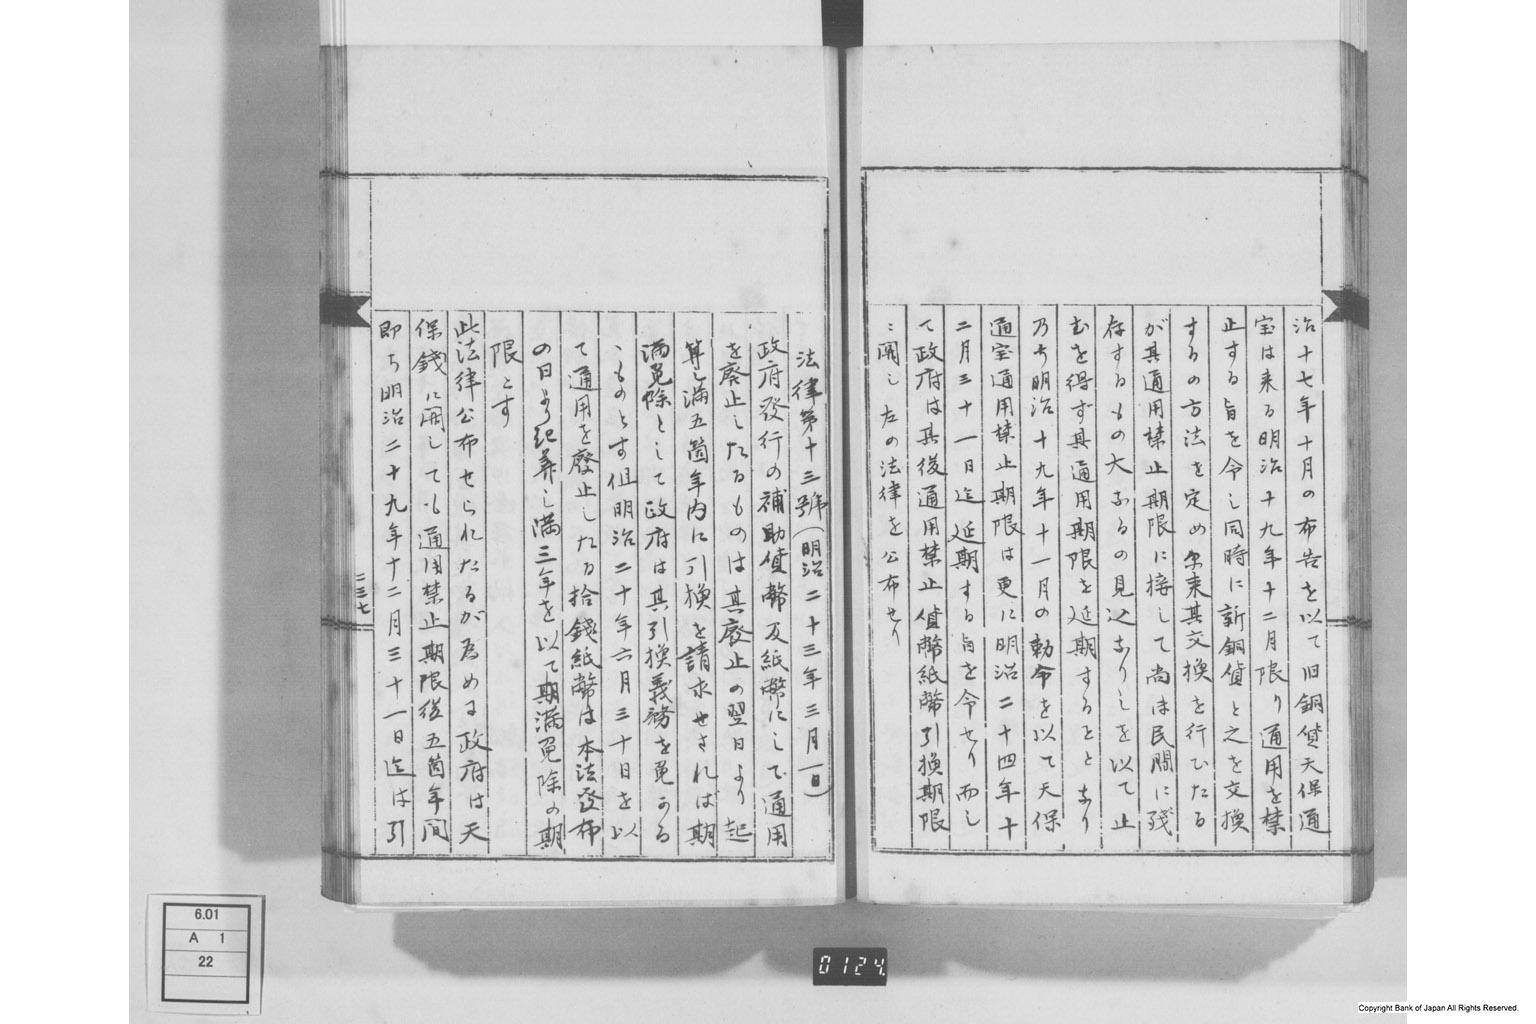 治十七年十月の布告を以て旧銅貨天保通
宝は来る明治十九年十二月限り通用を禁
止する旨を令し同時に新銅貨と之を交換
するの方法を定め尓来其交換を行ひたる
が其通用禁止期限に接して尚ほ民間に残
存するもの大なるの見込なりしを以て止
むを得ず其通用期限を延期することゝなり
乃ち明治十九年十一月の勅令を以て天保
通宝通用禁止期限は更に明治二十四年十
二月三十一日迄延期する旨を令せり而し
て政府は其後通用禁止貨幣紙幣引換期限
に関し左の法律を公布せり
法律第十三號(明治二十三年三月一日)
政府發行の補助貨幣及紙幣にして通用
を廢止したるものは其廢止の翌日より起
算し満五箇年内に引換を請求せされば期
満免除として政府は其引換義務を免かる
ゝものとす但明治二十年六月三十日を以
て通用を廢止したる拾錢紙幣は本法發布
の日より起算し満三年を以て期満免除の期
限とす
此法律公布せられたるが為め政府は天
保錢に関しても通用禁止期限後五箇年間
即ち明治二十九年十二月三十一日迄は引
二三七
6.01
A 1
22
0124
Copyright Bank of Japan All Rights Reserved.